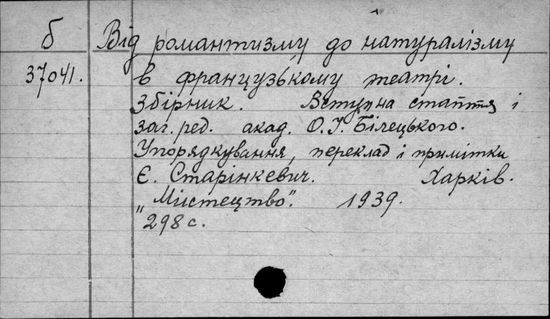 б Від романтизму до натуралізму
37041. в французькому театрі.
Збірник. Вступна стаття і
заг. ред. акад. О. І. Білецького.
Упорядкування, переклад і примітки
Є. Старінкевич. Харків.
„Мистецтво". 1939.
298 с.